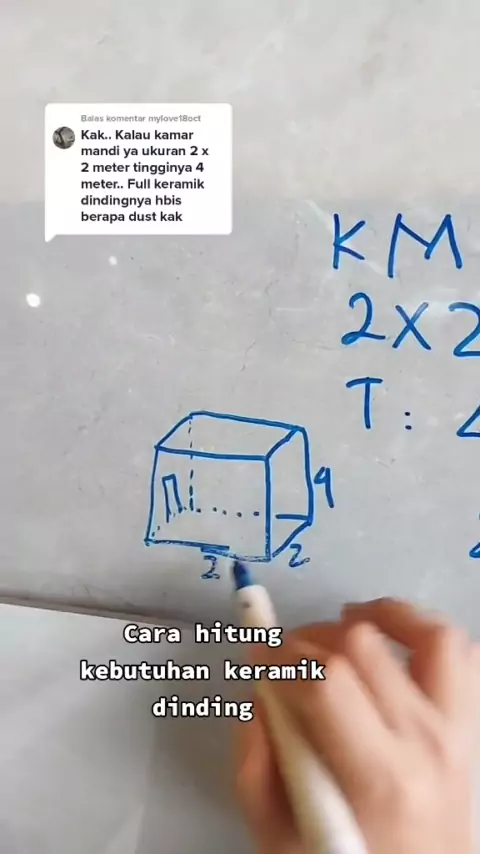 Balas komentar mylove18oct
Kak.. Kalau kamar
mandi ya ukuran 2 x
2 meter tingginya 4
meter.. Full keramik
dindingnya hbis
berapa dust kak
KM
2X2
T:
4
2
2
Cara hitung
kebutuhan keramik
dinding